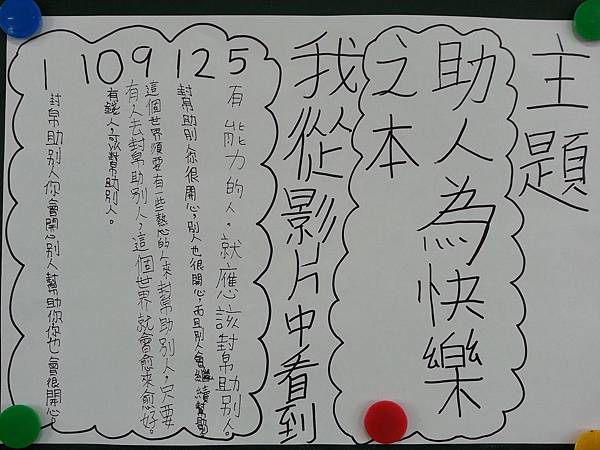 主題
助人為快樂
之本
我從影片中看到
5
有能力的人。就應該幫助別人。
12
幫助別人你很開心,別人也很開心,而且別人會繼續幫助
9
這個世界須要有一些熱心的人來幫助別人,只要
有人去幫助別人,這個世界就會愈來愈好。
10
有錢人,可以幫助別人。
1
幫助別人你會開心別人幫助你你也會很開心。